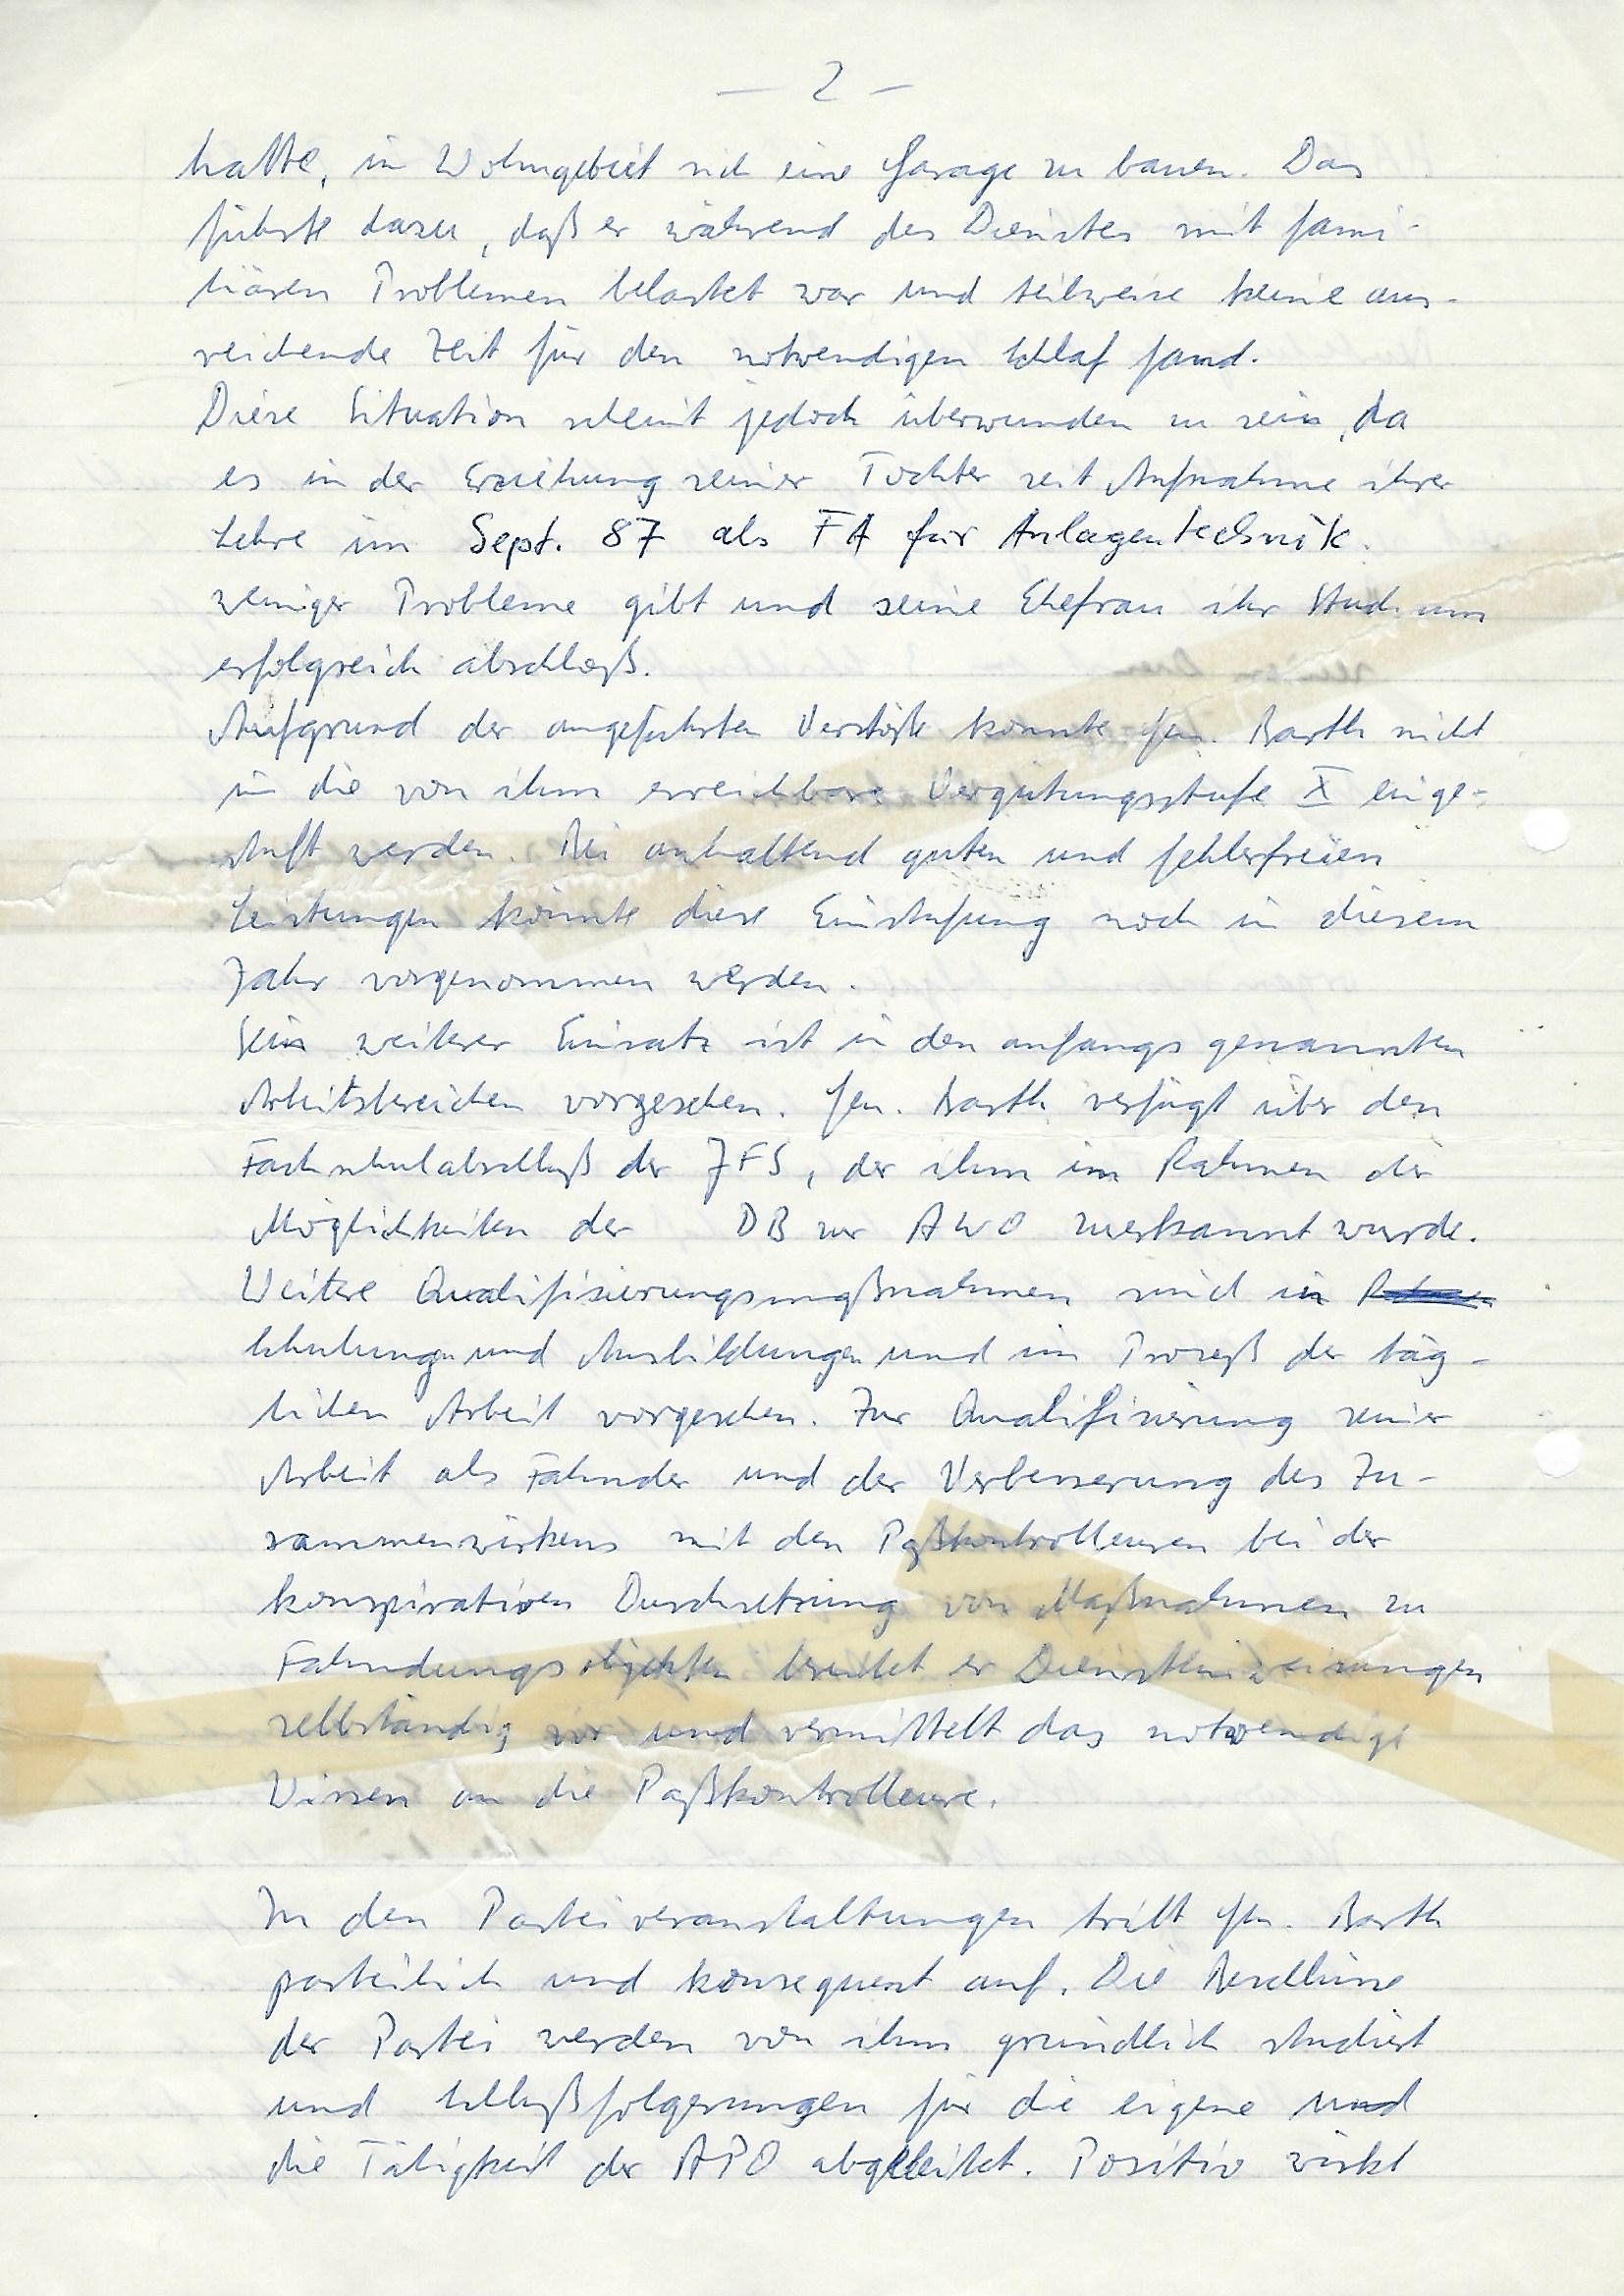 — 2 —
hatte, im Wohngebiet sich eine Garage zu bauen. Das
führte dazu, daß er während des Dienstes mit fami-
liären Problemen belastet war und teilweise keine aus-
reichende Zeit für den notwendigen Schlaf fand.
Diese Situation scheint jedoch überwunden zu sein, da
es in der Erziehung seiner Tochter seit Aufnahme ihrer
Lehre im Sept. 87 als FA für Anlagentechnik.
weniger Probleme gibt und seine Ehefrau ihr Studium
erfolgreich abschloß.
Aufgrund der angeführten Verstöße konnte Gen. Barth nicht
in die von ihm erreichbare Vergütungsstufe X einge-
stuft werden. Bei anhaltend guten und fehlerfreien
Leistungen könnte diese Einstufung noch in diesem
Jahr vorgenommen werden.
Sein weiterer Einsatz ist in den anfangs genannten
Arbeitsbereichen vorgesehen. Gen. Barth verfügt über den
Fachschulabschluß der JFS, der ihm im Rahmen der
Möglichkeiten der DB zur AWO zuerkannt wurde.
Weitere Qualifizierungsmaßnahmen sind in
Schulungen und Ausbildungen und im Prozeß der täg-
lichen Arbeit vorgesehen. Zur Qualifizierung seiner
Arbeit als Fahnder und der Verbesserung des Zu-
sammenwirkens mit den Paßkontrolleuren bei der
konspirativen Durchsetzung von Maßnahmen zu
Fahndungsobjekten bereitet er Diensteinweisungen
selbständig vor und vermittelt das notwendige
Wissen an die Paßkontrolleure.
In den Parteiveranstaltungen tritt Gen. Barth
parteilich und konsequent auf. Die Beschlüsse
der Partei werden von ihm gründlich studiert
und Schlußfolgerungen für die eigene und
die Tätigkeit der APO abgeleitet. Positiv wirkt